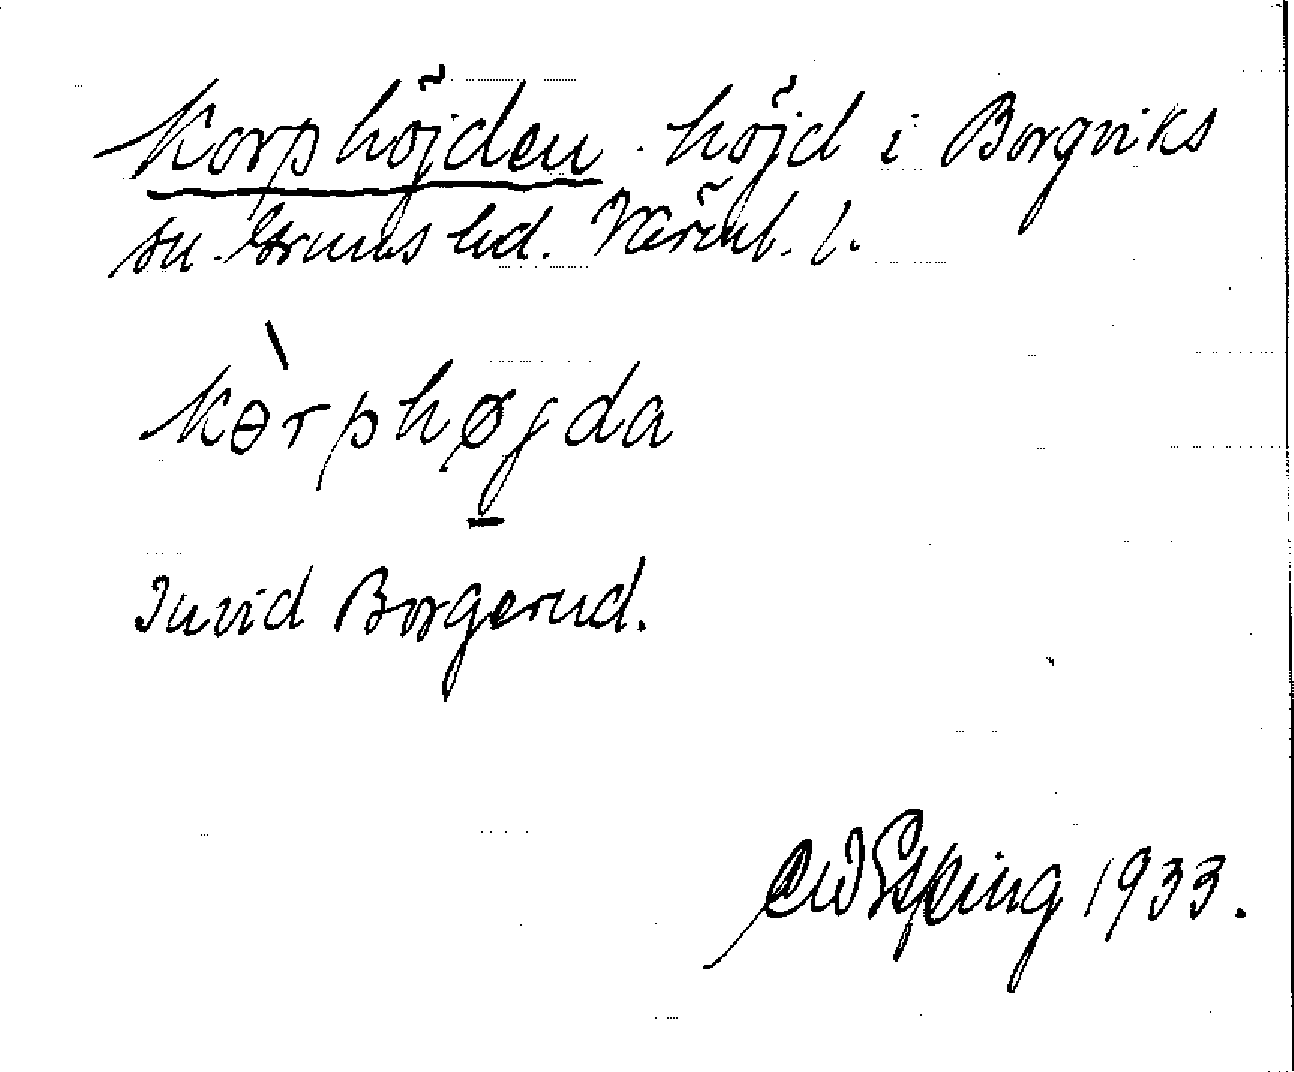 Korphöjden höjd i Borgviks
sn. Grums hd. Värml. l.
kɵ̀rphøgda
Invid Borgerud.
1933.